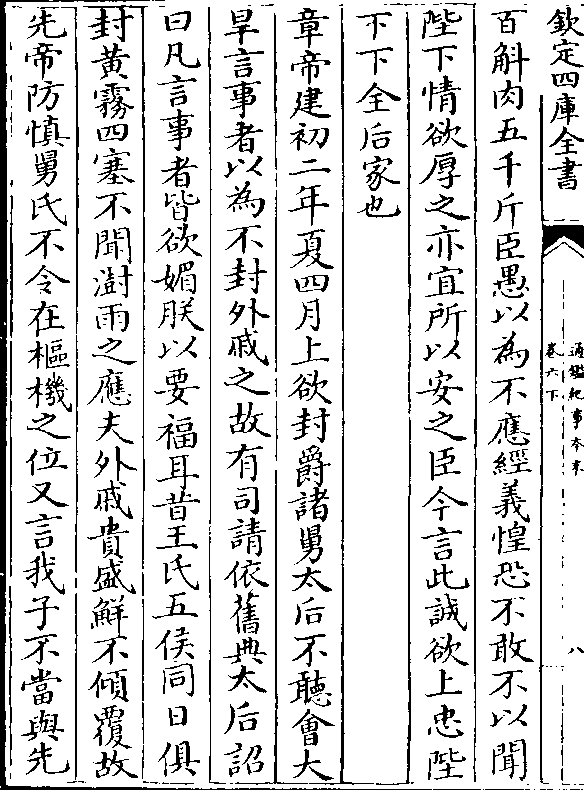 欽定四庫全書
通鑑紀事本末
卷六下
八
百斛肉五千斤臣愚以為不應經義惶恐不敢不以聞
陛下情欲厚之亦宜所以安之臣今言此誠欲上忠陛
下下全后家也
章帝建初二年夏四月上欲封爵諸舅太后不聽會大
旱言事者以為不封外戚之故有司請依舊典太后詔
曰凡言事者皆欲媚朕以要福耳昔王氏五侯同日俱
封黃霧四塞不聞澍雨之應夫外戚貴盛鮮不傾覆故
先帝防慎舅氏不令在樞機之位又言我子不當與先